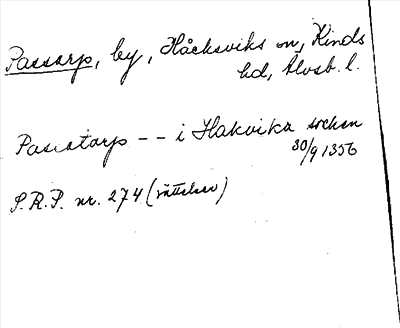 Passarp, by, Håcksviks sn, Kinds
hd, Älvsb. l.
Passatorp -- i Hakvika sochen
30/9 1356
S.R.P. nr. 274 (rättelser)